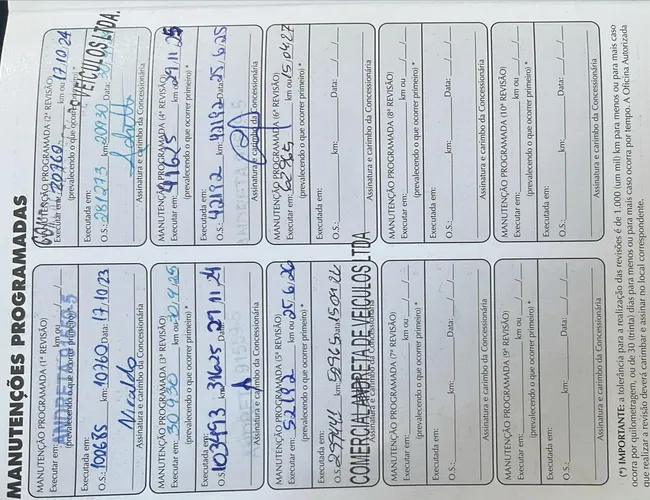 MANUTENÇÕES PROGRAMADAS
MANUTENÇÃO PROGRAMADA (1ª REVISÃO)
Executar em: km ou
(prevalecendo o que ocorrer primeiro) *
Executada em:
O.S.: 100685 km: 10760 Data: 17.10.23
Nivaldo
Assinatura e carimbo da Concessionária
MANUTENÇÃO PROGRAMADA (2ª REVISÃO)
Executar em: 20760 km ou 17.10.24
(prevalecendo o que ocorrer primeiro) *
VEICULOS LTDA.
Executada em:
O.S.: 281273 km: 20930 Data: 30
Assinatura e carimbo da Concessionária
MANUTENÇÃO PROGRAMADA (3ª REVISÃO)
Executar em: 30930 km ou
(prevalecendo o que ocorrer primeiro) *
Executada em:
O.S.: 103493 31625 29 11 24
Assinatura e carimbo da Concessionária
MANUTENÇÃO PROGRAMADA (4ª REVISÃO)
Executar em: 41625 km ou 29/11/25
(prevalecendo o que ocorrer primeiro) *
Executada em:
O.S.: 42192 km: 42192 Data: 25.6.25
Assinatura e carimbo da Concessionária
MANUTENÇÃO PROGRAMADA (5ª REVISÃO)
Executar em: 52192 km ou 25.6.26
(prevalecendo o que ocorrer primeiro) *
Executada em:
O.S.: km: 52765 Data: 15 04 26
COMERCIAL ANDRETA DE VEICULOS LTDA
Assinatura e carimbo da Concessionária
MANUTENÇÃO PROGRAMADA (6ª REVISÃO)
Executar em: 62765 km ou 15/04/27
(prevalecendo o que ocorrer primeiro) *
Executada em:
O.S.: km: Data: / /
Assinatura e carimbo da Concessionária
MANUTENÇÃO PROGRAMADA (7ª REVISÃO)
Executar em: km ou / /
(prevalecendo o que ocorrer primeiro) *
Executada em:
O.S.: km: Data: / /
Assinatura e carimbo da Concessionária
MANUTENÇÃO PROGRAMADA (8ª REVISÃO)
Executar em: km ou / /
(prevalecendo o que ocorrer primeiro) *
Executada em:
O.S.: km: Data: / /
Assinatura e carimbo da Concessionária
MANUTENÇÃO PROGRAMADA (9ª REVISÃO)
Executar em: km ou / /
(prevalecendo o que ocorrer primeiro) *
Executada em:
O.S.: km: Data: / /
Assinatura e carimbo da Concessionária
MANUTENÇÃO PROGRAMADA (10ª REVISÃO)
Executar em: km ou / /
(prevalecendo o que ocorrer primeiro) *
Executada em:
O.S.: km: Data: / /
Assinatura e carimbo da Concessionária
(*) IMPORTANTE: a tolerância para a realização das revisões é de 1.000 (um mil) km para menos ou para mais caso
ocorra por quilometragem, ou de 30 (trinta) dias para menos ou para mais caso ocorra por tempo. A Oficina Autorizada
que realizar a revisão deverá carimbar e assinar no local correspondente.